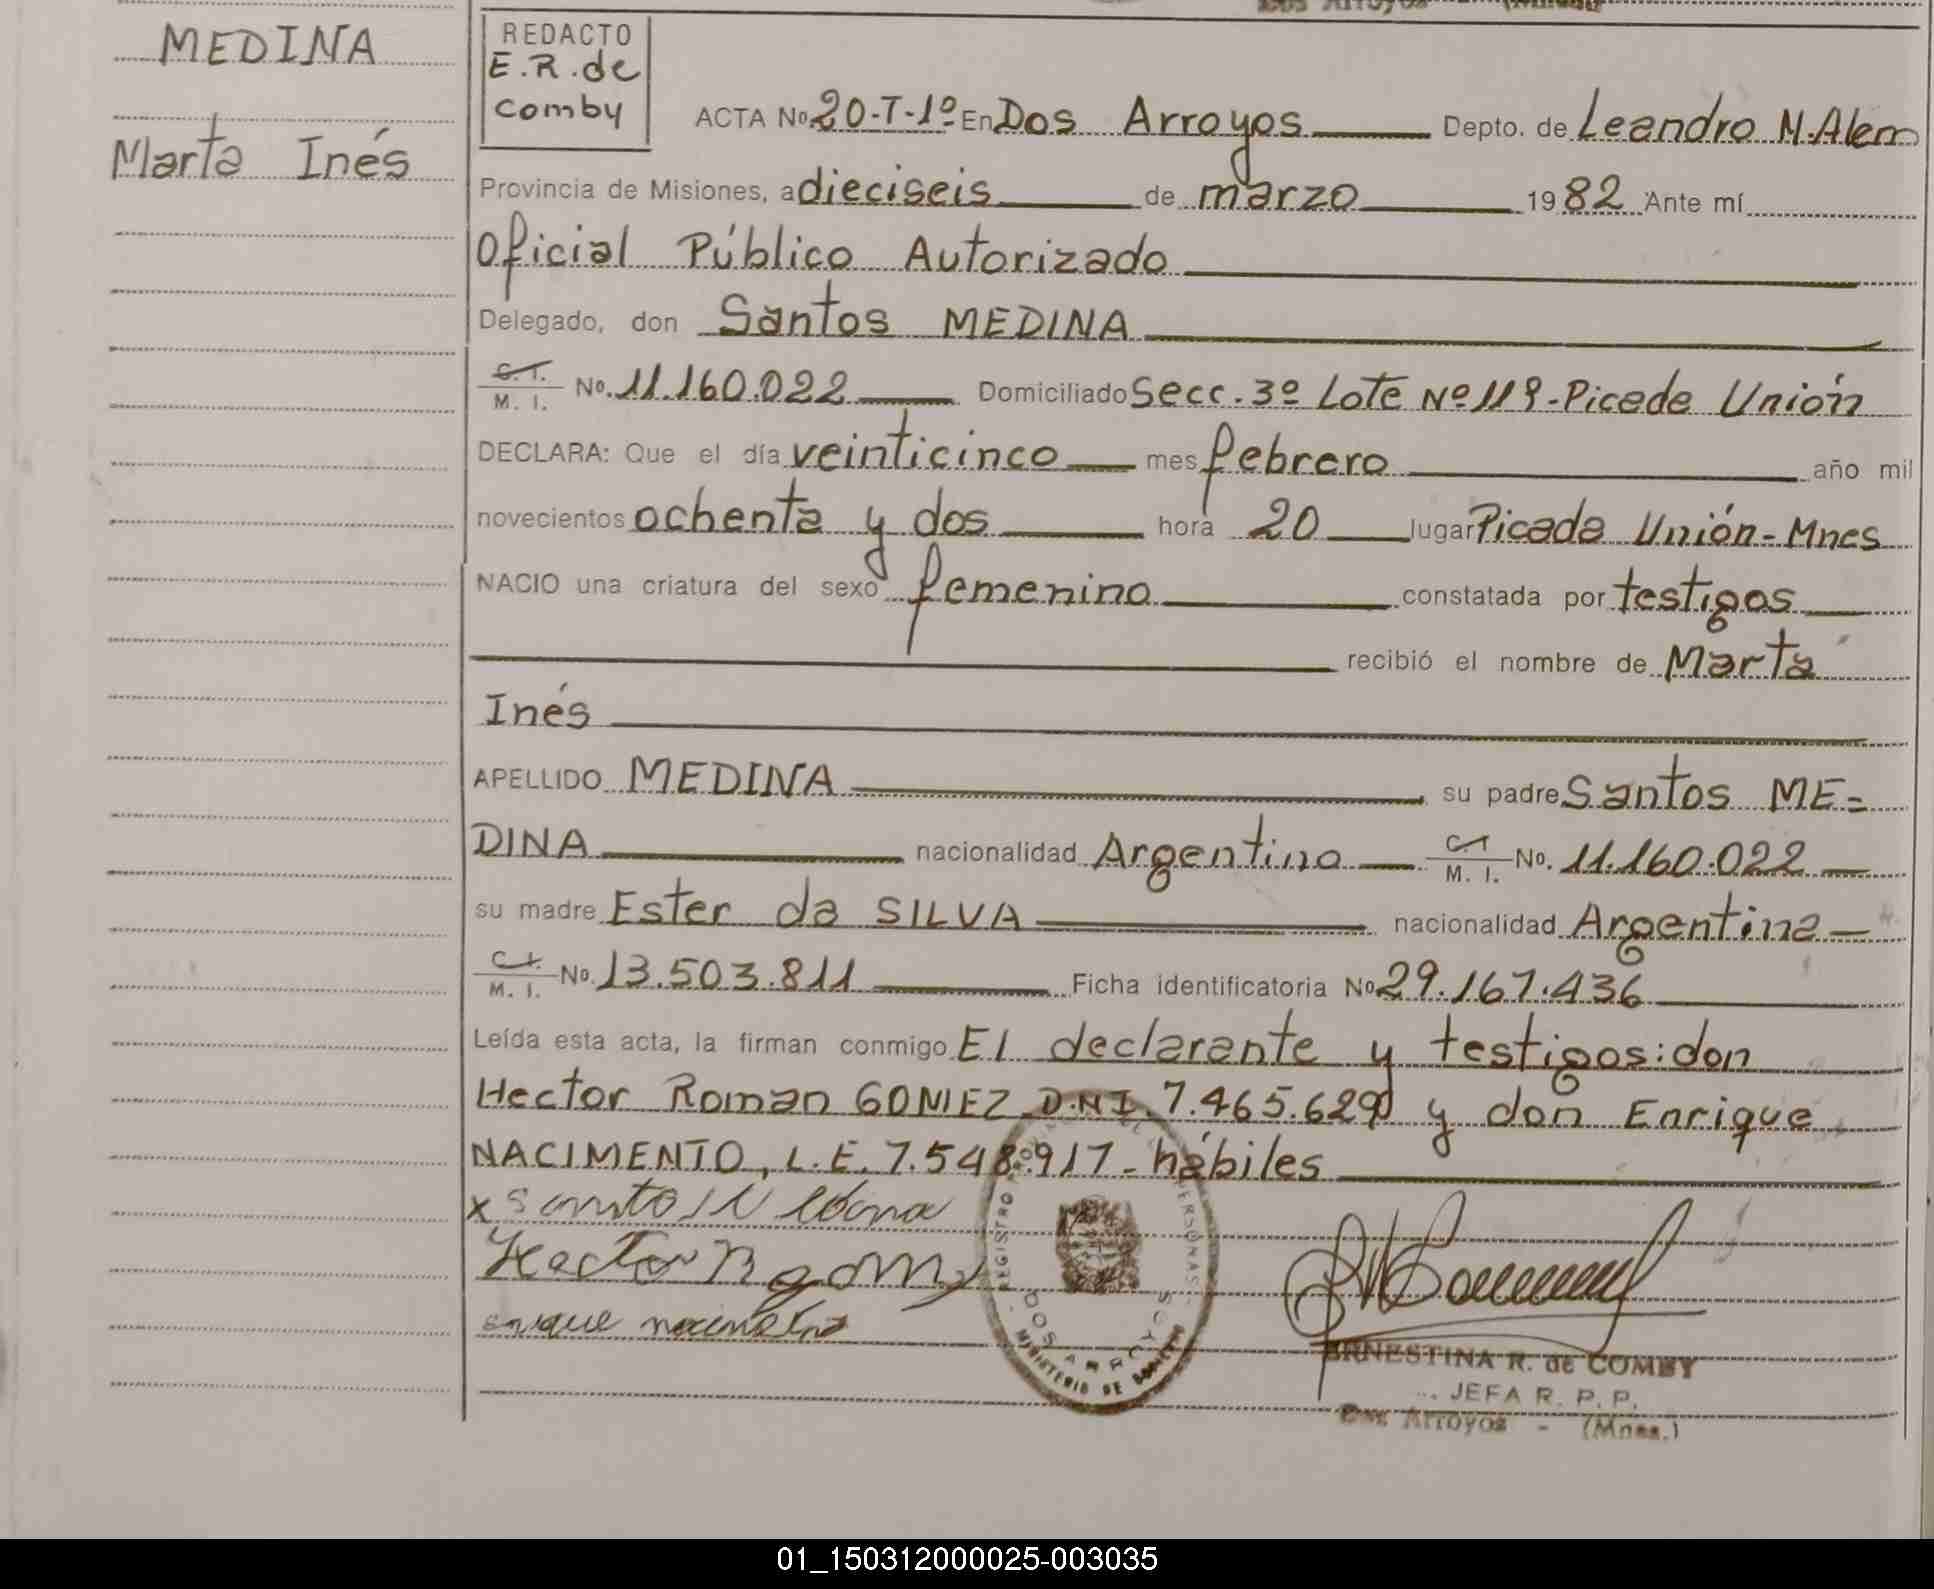 MEDINA
Marta Inés
REDACTO
E.R.de
comby
ACTA No. 20-T-1º En Dos Arroyos Depto. de Leandro N. Alem
Provincia de Misiones, a dieciseis de marzo 1982 Ante mí
Oficial Público Autorizado
Delegado, don Santos MEDINA
C.I. M. I. No. 11.160.022 Domiciliado Secc. 3º Lote Nº 119-Picada Unión
DECLARA: Que el día veinticinco mes febrero año mil
novecientos ochenta y dos hora 20 lugar Picada Unión-Mnes
NACIO una criatura del sexo femenino constatada por testigos
recibió el nombre de Marta
Inés
APELLIDO MEDINA su padre Santos ME=
DINA nacionalidad Argentino C.I M. I. No. 11.160.022
su madre Ester da SILVA nacionalidad Argentina
C.I. M. I. No. 13.503.811 Ficha identificatoria No 29.167.436
Leída esta acta, la firman conmigo El declarante y testigos: don
Hector Roman GOMEZ D.N.I. 7.465.629 y don Enrique
NACIMENTO, L.E. 7.548.917- hábiles
Hector R gomez
enrique nacimento
REGISTRO PROVINCIAL DE LAS PERSONAS
DOS ARROYOS
MINISTERIO DE GOBIERNO
ERNESTINA R. de COMBY
JEFA R. P. P.
Dos Arroyos - (Mnes.)
01_150312000025-003035